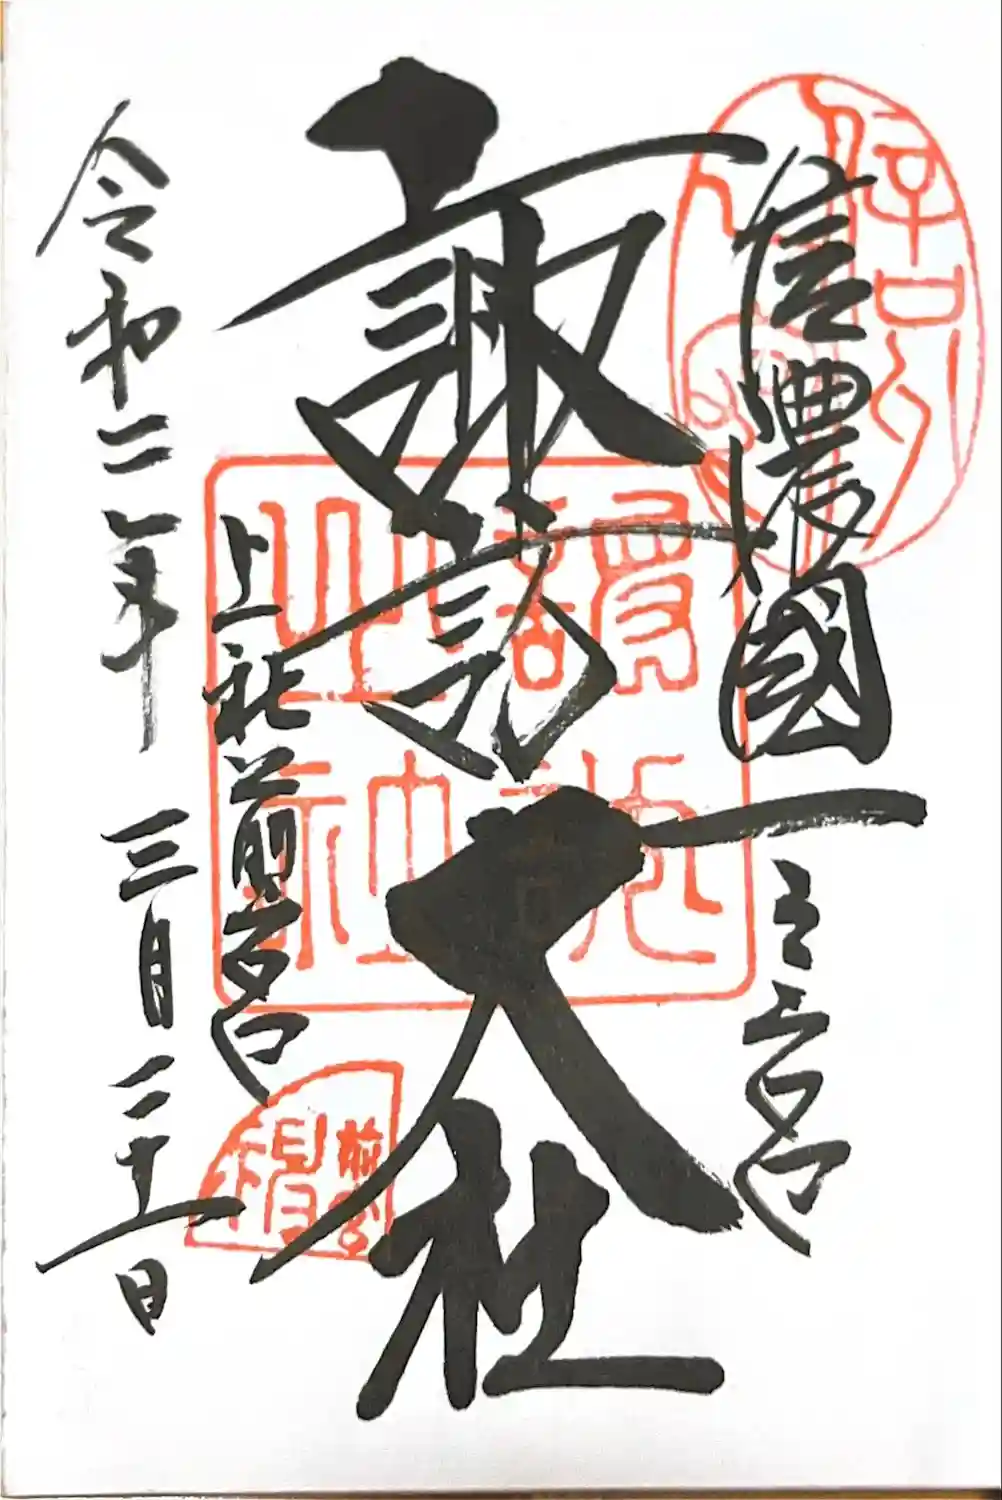 信濃國一之宮
諏訪大社
上社前宮
令和二年三月二十一日
前宮